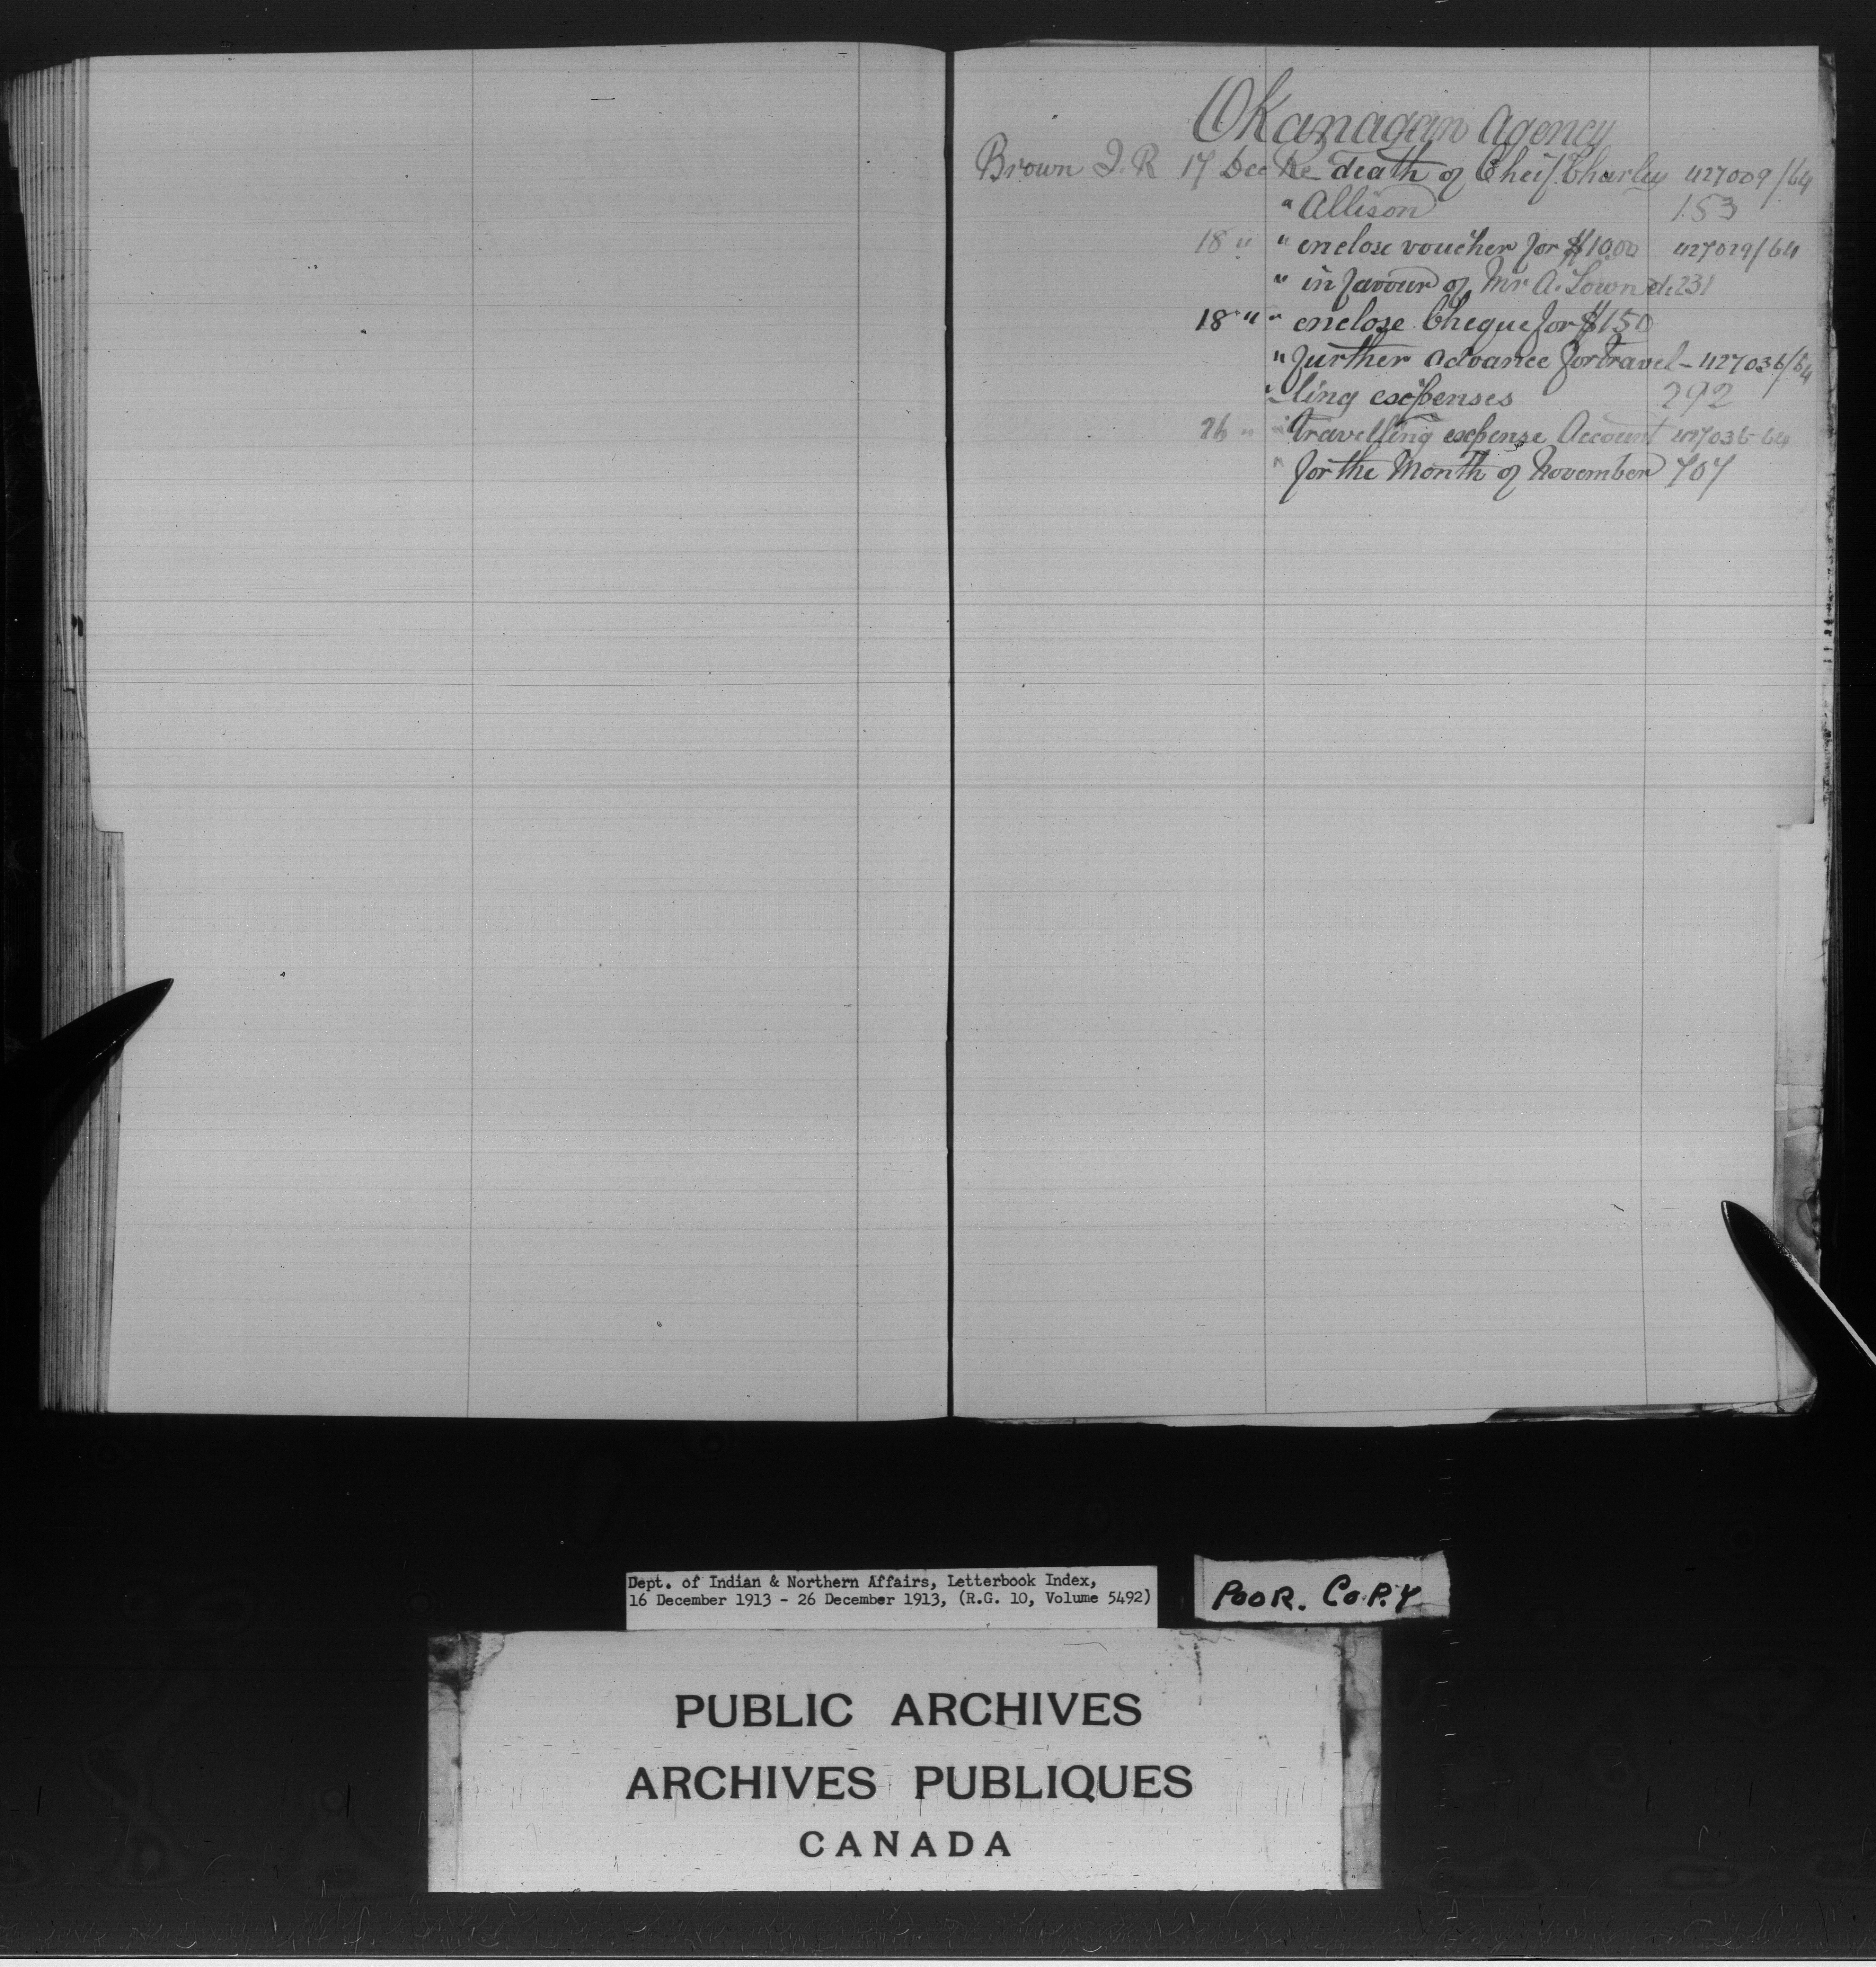 Okanagan Agency
Brown J. R 17 Dec Re death of Cheif Charley 427009/64
" Allison 153
18 " " enclose voucher for $10.00 427029/64
" in favour of Mr A. Townd. 231
18 " " enclose Cheque for $150
" further advance for travel- 427036/64
" ling expenses 292
26 " " travelling expense Account 427036-64
" for the Month of November 707
Dept. of Indian & Northern Affairs, Letterbook Index,
16 December 1913 - 26 December 1913, (R.G. 10, Volume 5492)
POOR. COPY
PUBLIC ARCHIVES
ARCHIVES PUBLIQUES
CANADA